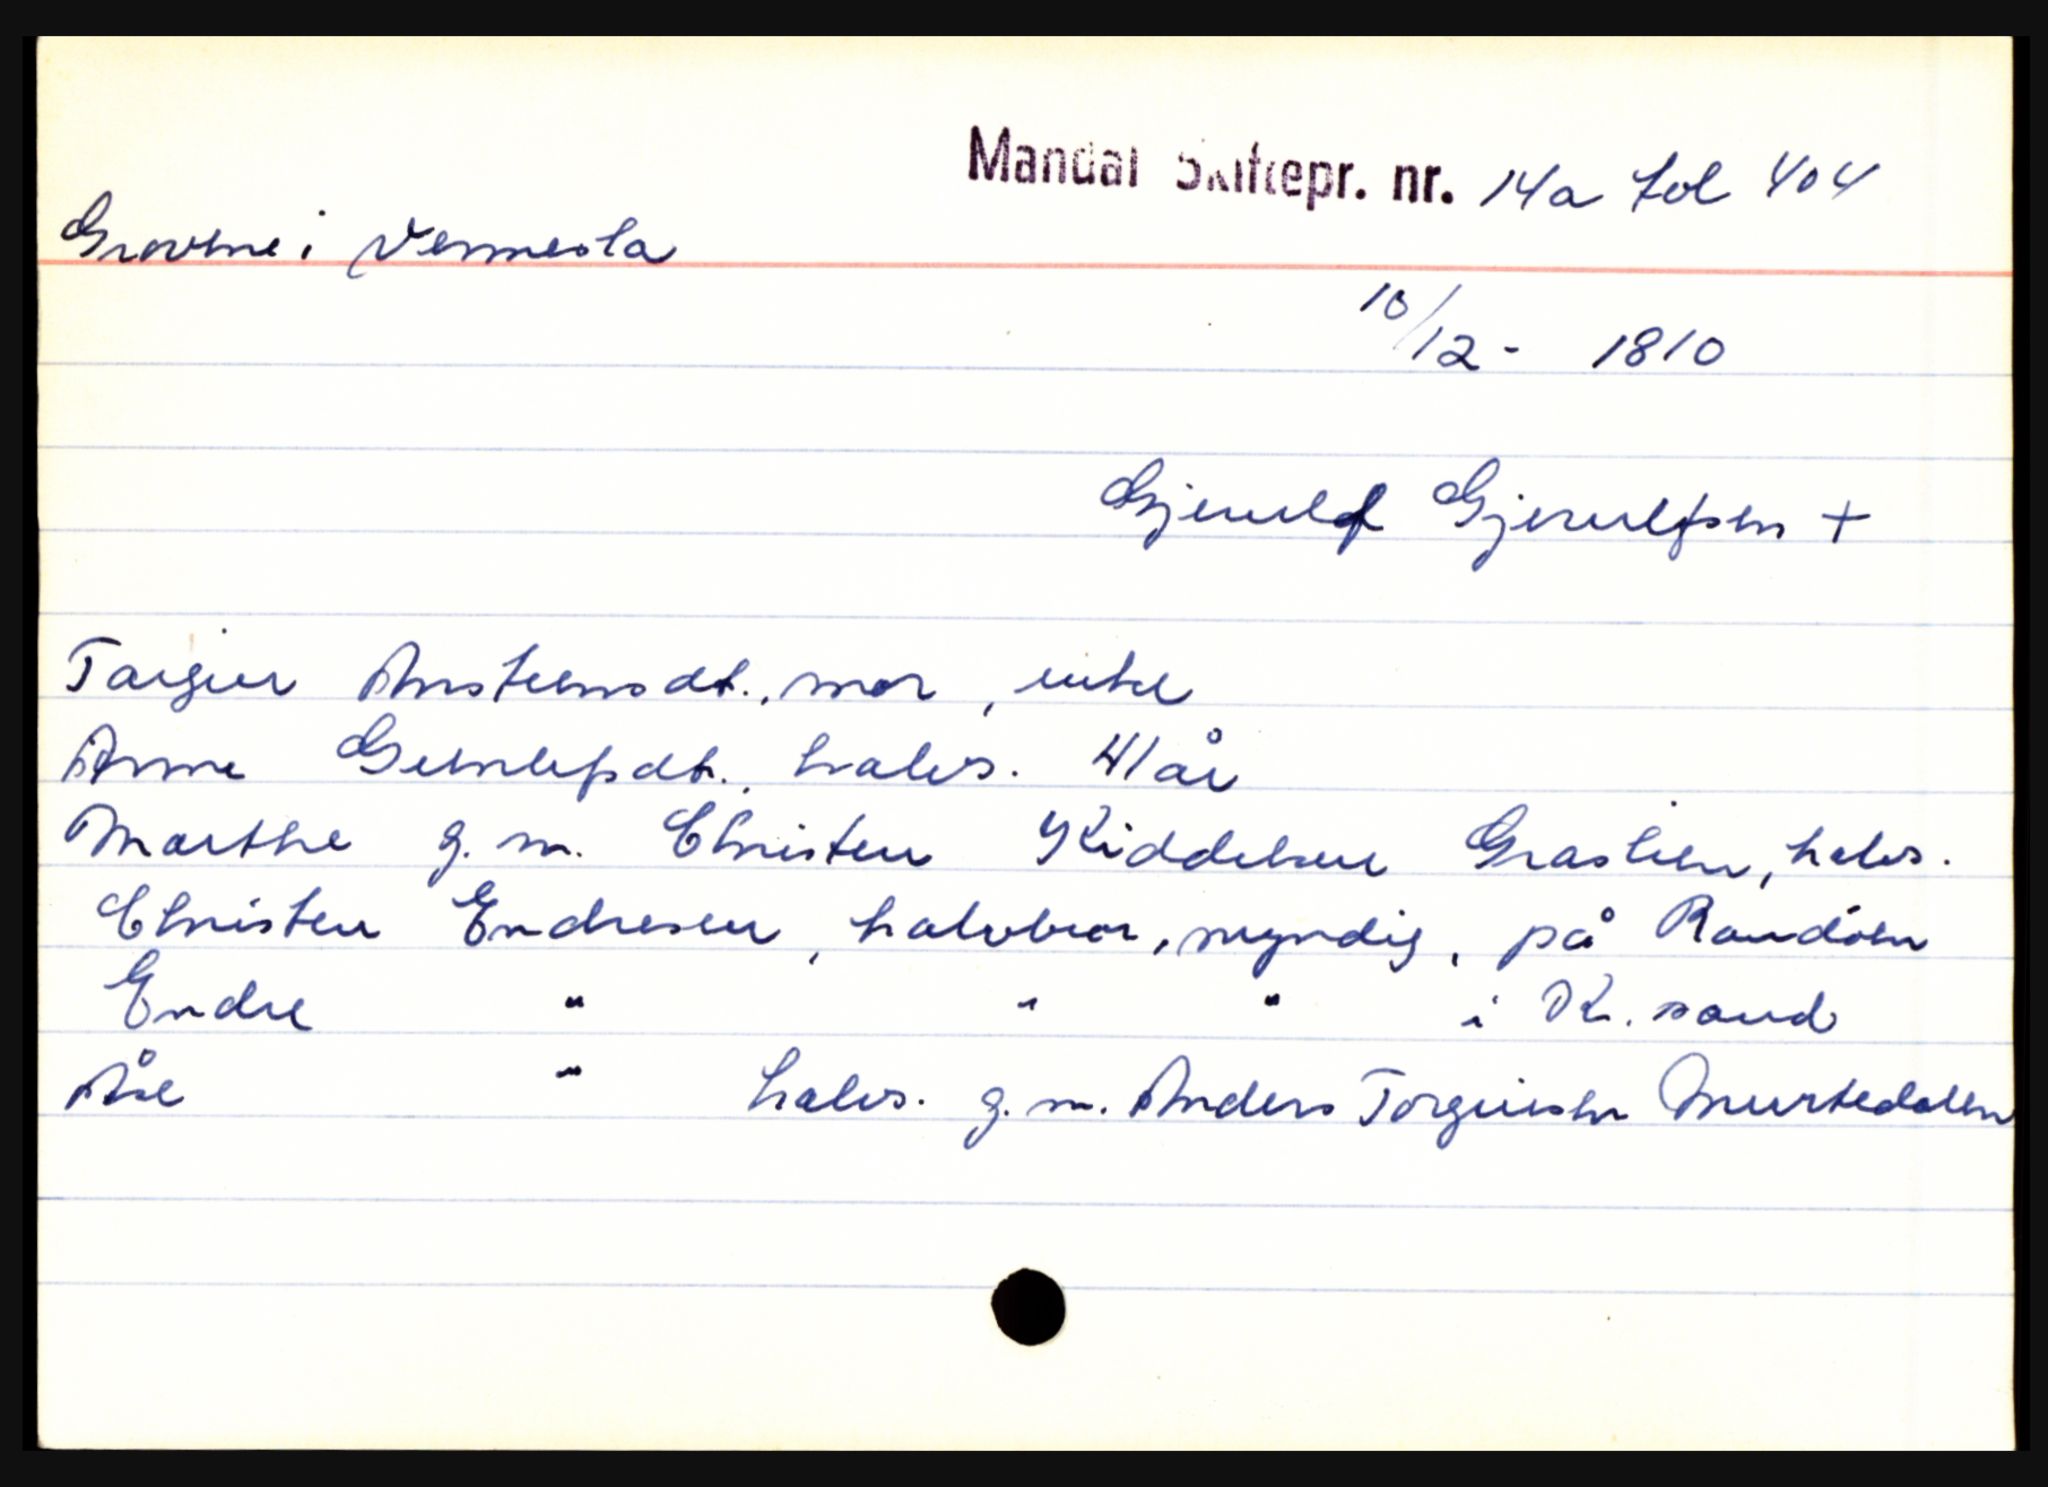 Mandal Skiftepr. nr. 14a fol 404
Grovene i Vennesla
10/12 - 1810
Gjerulf Gjerulfsen +
Targier Anstensdt., mor, enke
Anne Gierulfsdt. halvs. 41 år
Marthe g. m. Christen Kiddelsen Graslien, halvs.
Christen Endresen, halvbror, myndig, på Randöen
Endre " " " i K. sand
Åse " halvs. g. m. Anders Torgiusen